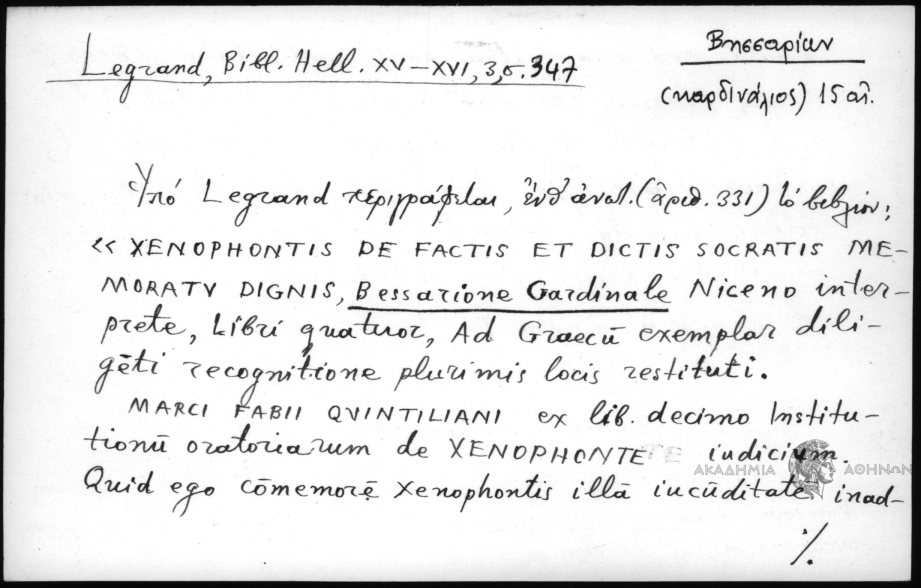 Legrand, Bibl. Hell. XV–XVI, 3, σ. 347
Βησσαρίων
(καρδινάλιος) 15 αἰ.
Ὑπό Legrand περιγράφεται, ἐνθ' ἀνωτ. (ἀριθ. 331) τό βιβλίον:
« XENOPHONTIS DE FACTIS ET DICTIS SOCRATIS ME-
MORATV DIGNIS, Bessarione Cardinale Niceno inter-
prete, Libri quatuor, Ad Graecū exemplar dili-
gēti recognitione plurimis locis restituti.
MARCI FABII QVINTILIANI ex lib. decimo Institu-
tionū oratoriarum de XENOPHONTE iudicium.
ΑΚΑΔΗΜΙΑ ΑΘΗΝΩΝ
Quid ego cōmemorē Xenophontis illā iucūditatē inad-
%.